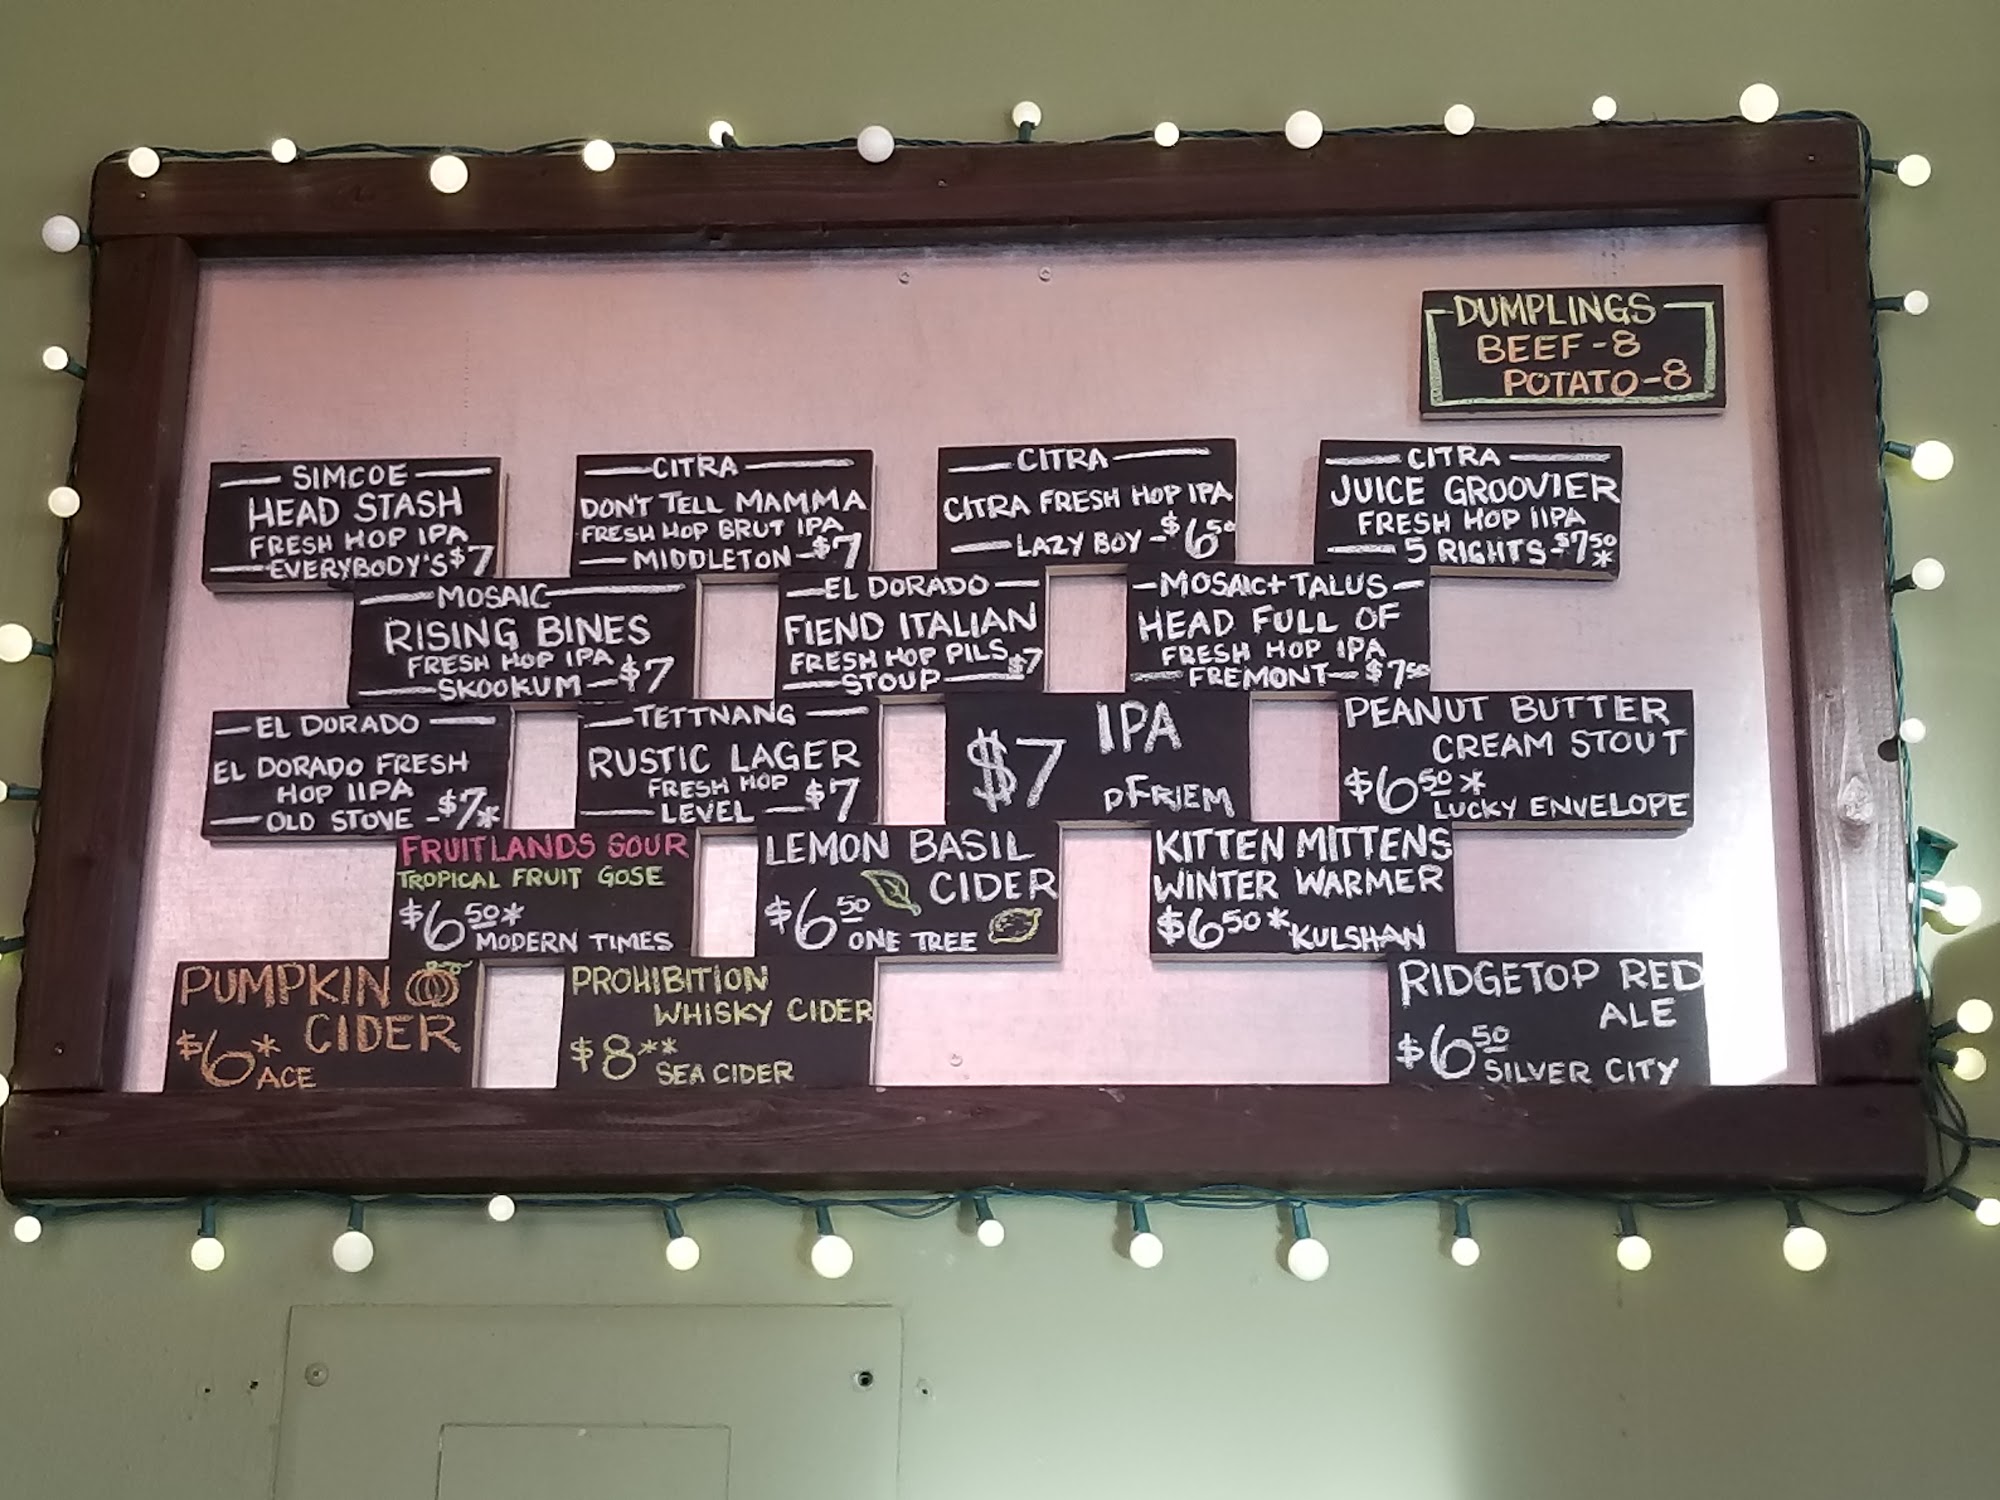 DUMPLINGS
BEEF-8
POTATO-8
SIMCOE
HEAD STASH
FRESH HOP IPA
EVERYBODY'S $7
CITRA
DON'T TELL MAMMA
FRESH HOP BRUT IPA
MIDDLETON - $7
CITRA
CITRA FRESH HOP IPA
LAZY BOY - $6.50
CITRA
JUICE GROOVIER
FRESH HOP IIPA
5 RIGHTS - $7.50*
MOSAIC
RISING BINES
FRESH HOP IPA
SKOOKUM - $7
EL DORADO
FIEND ITALIAN
FRESH HOP PILS $7
STOUP
MOSAIC + TALUS
HEAD FULL OF
FRESH HOP IPA
FREMONT - $7.50
EL DORADO
EL DORADO FRESH
HOP IIPA
OLD STOVE - $7*
TETTNANG
RUSTIC LAGER
FRESH HOP
LEVEL - $7
IPA
$7
pFRIEM
PEANUT BUTTER
CREAM STOUT
$6 50*
LUCKY ENVELOPE
FRUITLANDS SOUR
TROPICAL FRUIT GOSE
$6 50*
MODERN TIMES
LEMON BASIL
CIDER
$6 50
ONE TREE
KITTEN MITTENS
WINTER WARMER
$6 50* KULSHAN
PUMPKIN
CIDER
$6*
ACE
PROHIBITION
WHISKY CIDER
$8**
SEA CIDER
RIDGETOP RED
ALE
$6 50
SILVER CITY